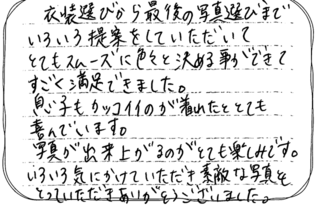 衣装選びから最後の写真選びまで
いろいろ提案をしていただいて
とてもスムーズに色々と決める事ができて
すごく満足できました。
息子もカッコイイのが着れたととても
喜んでいます。
写真が出来上がるのがとても楽しみです。
いろいろ気にかけていただき素敵な写真を
とっていただきありがとうございました。